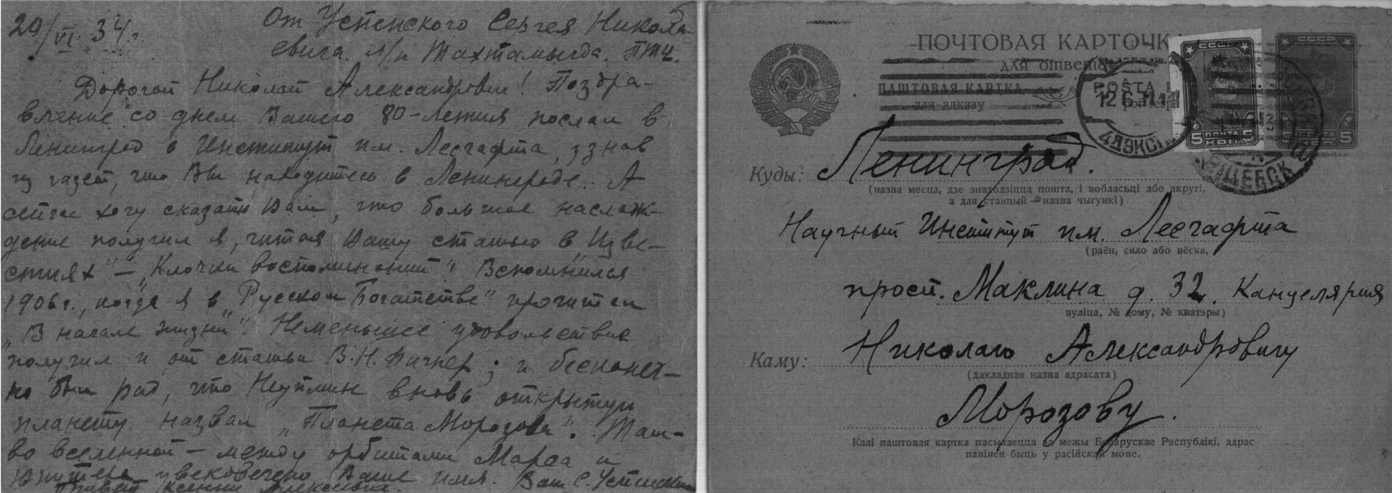 29/VI 34г.
От Успенского Сергея Никола
евича. п/к Тахтамыгда.
Дорогой Николай Александрович! Поздра-
вление со днем Вашего 80-летия послал в
Ленинград в Институт им. Лесгафта, узнав
из газет, что Вы находитесь в Ленинграде. А
сейчас хочу сказать Вам, что большое наслаж-
дение получил я, читая Вашу статью в „Изве-
стиях" – „Клочки воспоминаний". Вспомнился
1906г., когда я в „Русском Богатстве" прочитал
„В начале жизни". Неменьшее удовольствие
получил и от статьи В.Н. Фигнер; и бесконеч-
но был рад, что Неуймин вновь открытую
планету назвал „Планета Морозова". Там-
во вселенной – между орбитами Марса и
Юпитера увековечено Ваше имя. Ваш С. Успенский
Привет Ксении Алексеевне.
ПОЧТОВАЯ КАРТОЧК
для ответа
ПАШТОВАЯ КАРТКА
для адказу
СССР
СССР
POSTA
12 6
5 ПОЧТА 5
КОП.
5 5
Куды: Ленинград.
(назва месца, дзе знаходзіцца пошта, і вобласьці або акругі,
а для станцый – назва чыгункі)
Научный Институт им. Лесгафта
(раён, сяло або вёска,
просп. Маклина д. 32. Канцелярия
вуліца, № дому, № кватэры)
Каму: Николаю Александровичу
(дакладная назва адрасата)
Морозову.
Калі паштовая картка пасылаецца за межы Беларускае Рэспублікі, адрас
павінен быць у расійскай мове.